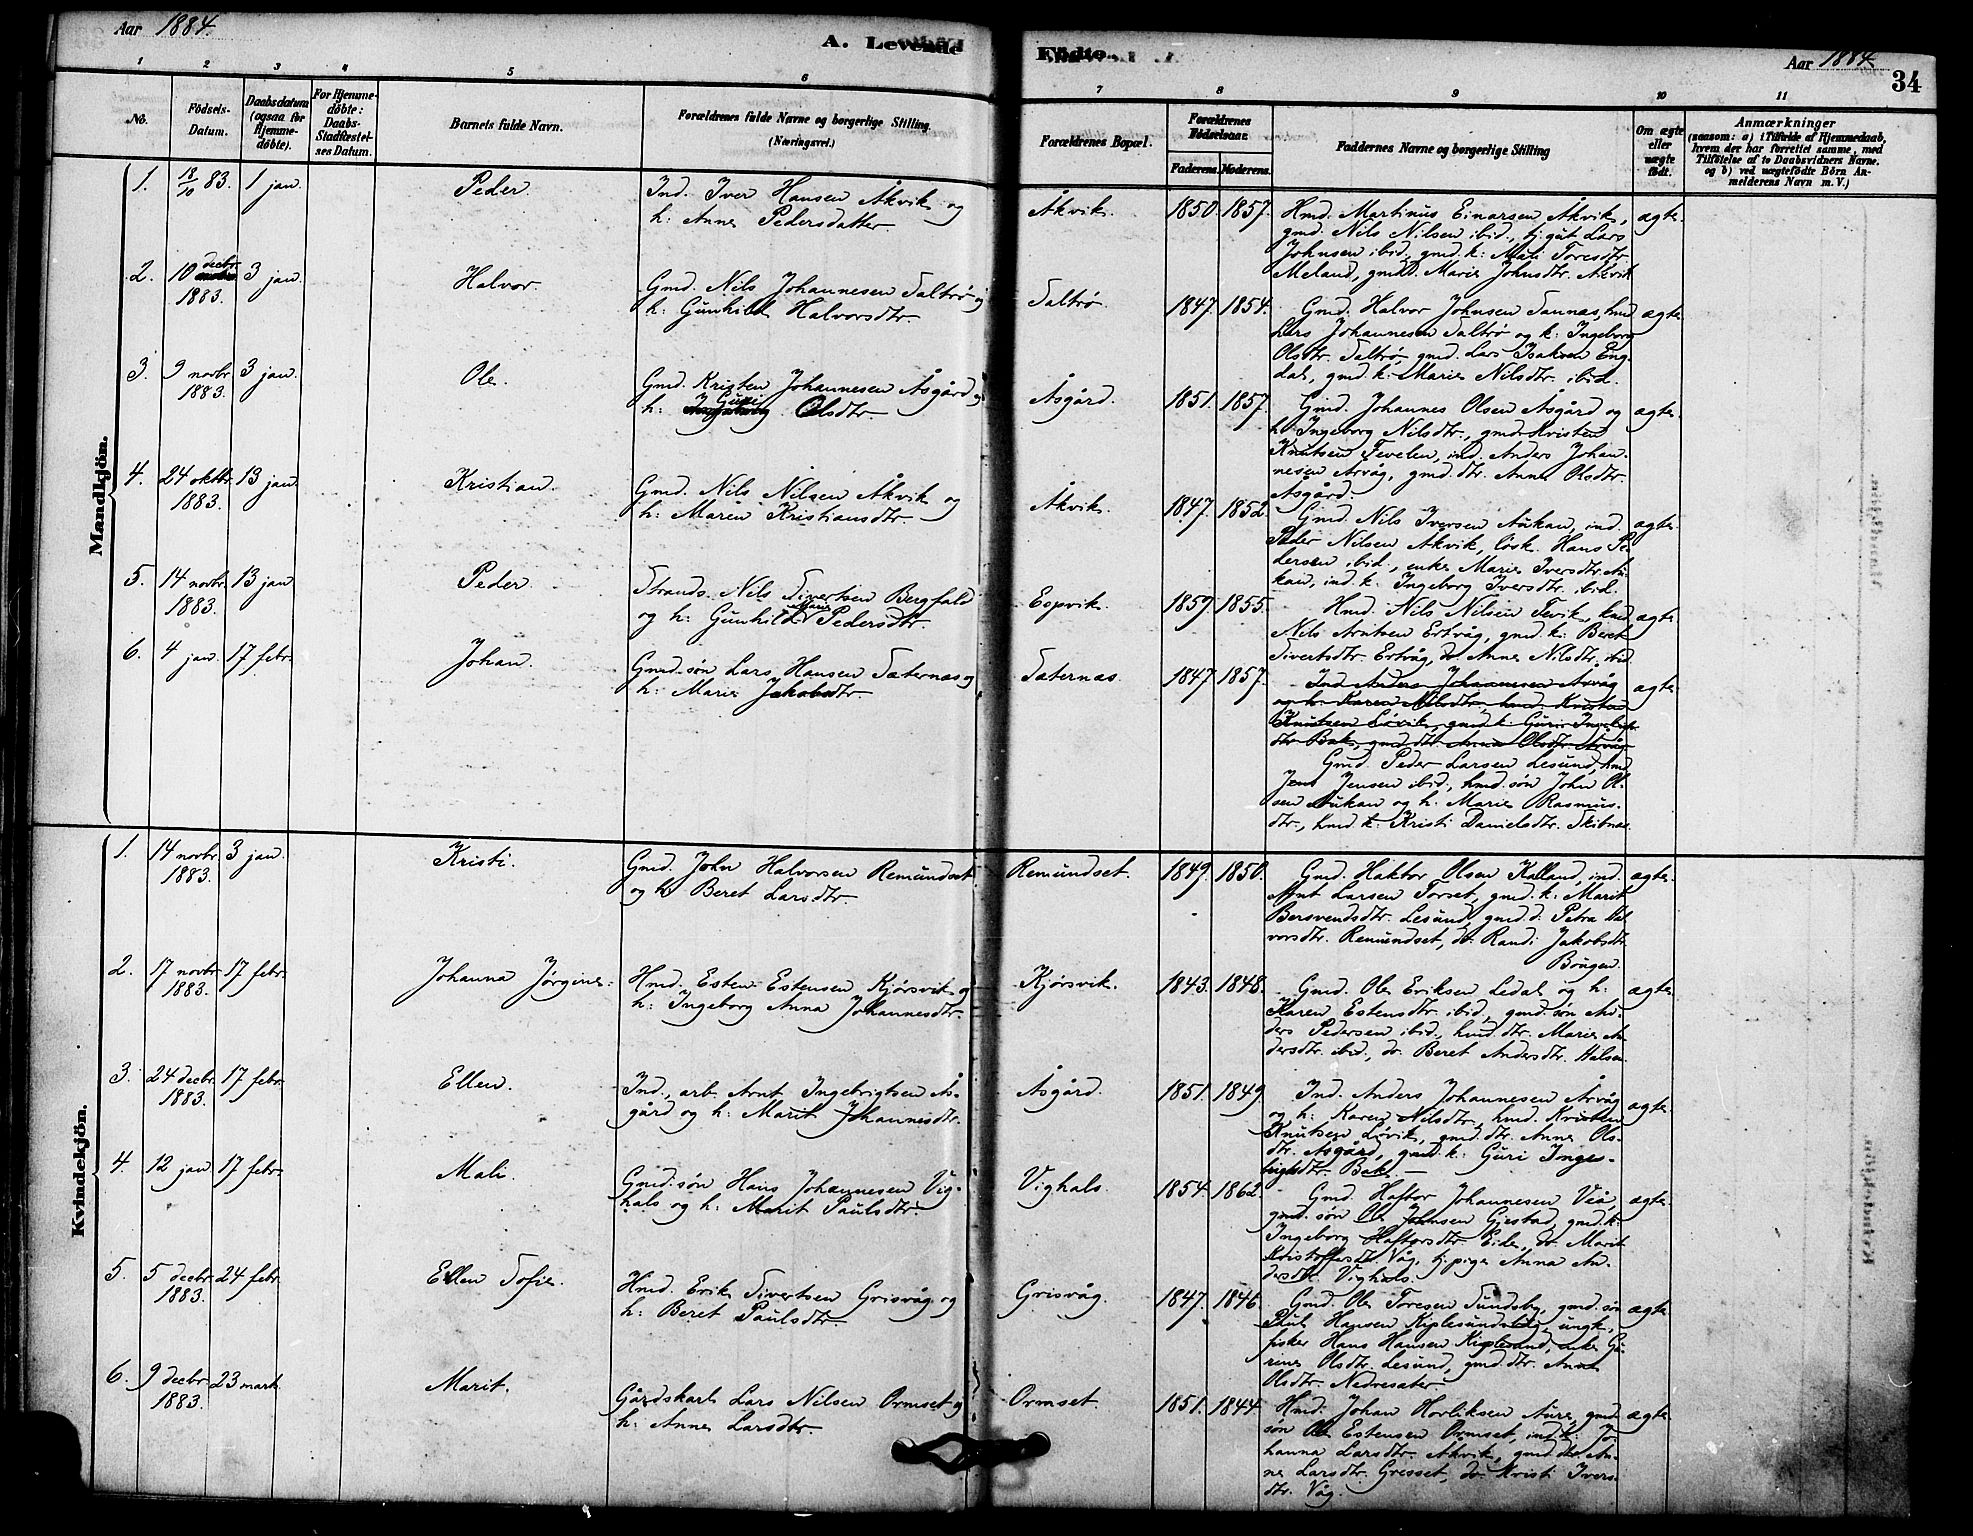 Aar 1884.
A. Levende
Fødte.
Aar 1884.
34
1
2
3
4
5
6
7
8
9
10
11
No.
Födsels-
Datum.
Daabsdatum
(ogsaa for
Hjemme-
döbte).
For Hjemme-
döbte:
Daabs-
Stadfæstel-
ses Datum.
Barnets fulde Navn.
Forældrenes fulde Navne og borgerlige Stilling
(Næringsvei.)
Forældrenes Bopæl.
Forældrenes
Födselsaar.
Faderens. Moderens.
Faddernes Navne og borgerlige Stilling
Om ægte
eller
uægte
født.
Anmærkninger
(saasom: a) i Tilfælde af Hjemmedaab,
hvem der har forrettet samme, med
Tilföielse af to Daabsvidners Navne.
og b) ved uægtefödte Börn An-
melderens Navn m. V.)
Mandkjön.
1. 18/10 83. 1 jan. Peder. Ind. Iver Hansen Åkvik og
h: Anne Pedersdatter.
Åkvik. 1850. 1857. Hmd. Martinus Einarsen Åkvik, ægte.
gmd. Nils Nilsen ibid., tj.gut Lars
Johnsen ibid., gmd. k: Mali Toresdtr.
Meland, gmd. d. Marie Johnsdtr. Åkvik
2. 10 decbr. 1883. 3 jan. Halvor. Gmd. Nils Johannesen Saltrø og
h: Gunhild Halvorsdtr.
Saltrø. 1847. 1854. Gmd. Halvor Johnsen Saunæs, hmd ægte.
Lars Johannesen Saltrø og k: Ingeborg
Olsdtr. Saltrø, gmd. Lars Isaksen Eng-
dal, gmd. k: Marie Nilsdtr. ibid.
3. 9 novbr. 1883. 3 jan. Ole. Gmd. Kristen Johannesen Åsgård og
h: Guri Olsdtr.
Åsgård. 1851. 1857. Gmd. Johannes Olsen Åsgård og ægte.
h: Ingeborg Nilsdtr., gmd. Kristen
Knutsen Tevelen, ind. Anders Johan-
nesen Årvåg, gmd. dtr. Anne Olsdtr.
Åsgård.
4. 24 oktbr. 1883. 13 jan. Kristian. Gmd. Nils Nilsen Åkvik og
h: Maren Kristiansdtr.
Åkvik. 1847. 1852. Gmd. Nils Iversen Aukan, ind. ægte.
Peder Nilsen Åkvik, løsk. Hans Pe-
dersen ibid., enke Marie Iversdtr. Au-
kan, ind. k: Ingeborg Iversdtr. ibid.
5. 14 novbr. 1883. 13 jan. Peder. Strands. Nils Sivertsen Bergfald
og h: Gunhild Marie Pedersdtr.
Espvik. 1857. 1855. Hmd. Nils Nilsen Tevik, ægte.
Nils Arntsen Ertvåg, gmd. k: Beret
Sivertsdtr. Ertvåg, do. Anne Nilsdtr. ibid
6. 4 jan. 17 febr. Johan. Gmd. søn Lars Hansen Sæternæs og
h: Marie Jakobsdtr
Sæternæs. 1847. 1857. Ind. Anders Johannesen Årvåg ægte.
og h: Karen Nilsdtr., hmd. Kristen
Knutsen Løvik, gmd. k: Guri Ingebrigts-
dtr. Bak, gmd. dtr. Anne Olsdtr. Årvåg
Gmd. Peder Larsen Lesund, hmd
Jens Jensen ibid., hmd. søn John Ol-
sen Aukan og h. Marie Rasmus-
dtr., hmd. k: Kristi Danielsdtr. Skibnæs.
Kvindekjön.
1. 14 novbr. 1883. 3 jan. Kristi. Gmd. John Halvorsen Remundset
og h: Beret Larsdtr
Remundset. 1849. 1850. Gmd. Haktor Olsen Kalland, ind. ægte.
Arnt Larsen Torset, gmd. k: Marit
Bersvendsdtr. Lesund, gmd. d: Petra Hal-
vorsdtr. Remundset, do. Randi Jakobsdtr.
Bøugen.
2. 17 novbr. 1883. 17 febr. Johanna Jørgine. Hmd. Esten Estensen Kjørsvik og
h: Ingeborg Anna Johannesdtr.
Kjørsvik. 1843. 1848. Gmd. Ole Eriksen Ledal og h: ægte.
Karen Estensdtr. ibid., gmd. søn An-
ders Pedersen ibid., hmd. dtr. Marie An-
dersdtr. ibid., do. Beret Andersdtr. Halsen
3. 24 decbr. 1883. 17 febr. Ellen. Ind., arb. Arnt Ingebrigtsen Ås-
gård og h: Marit Johannesdtr.
Åsgård. 1851. 1849 Ind. Anders Johannesen Årvåg ægte.
og h: Karen Nilsdtr., hmd. Kristen
Knutsen Løvik, gmd. dtr. Anne Ols-
dtr. Åsgård, gmd. k: Guri Inge-
brigtsdtr. Bak.
4. 12 jan. 17 febr. Mali. Gmd. søn Hans Johannesen Vig-
hals og h: Marit Paulsdtr.
Vighals. 1854. 1862. Gmd. Haftor Johannesen Veå, ægte.
gmd. søn Ole Johnsen Gjestad, gmd. k:
Ingeborg Haftorsdtr. Eide, do. Marit
Kristoffersdtr. Våg, tj. pige Anna An-
dersdtr. Vighals.
5. 5 decbr. 1883. 24 febr. Ellen Sofie. Hmd. Erik Sivertsen Grisvåg og
h: Beret Paulsdtr
Grisvåg. 1847. 1846. Gmd. Ole Toresen Sundsby, gmd. søn ægte.
Paul Hansen Kiplesund, ungk.,
fisker Hans Hansen Kiplesund, enke Gu-
rine Olsdtr. Lesund, gmd. dtr. Anne
Olsdtr. Nedresæter.
6. 9 decbr. 1883. 23 marts. Marit. Gårdskarl Lars Nilsen Ormset og
h: Anne Larsdtr.
Ormset. 1851. 1844. Hmd. Johan Hovliksen Aure, gmd. ægte.
søn Ole Estensen Ormset, ind. k: Jo-
hanna Larsdtr. Åkvik, gmd. dtr. An-
ne Larsdtr. Gresset, do. Kristi Ivers-
dtr. Våg.